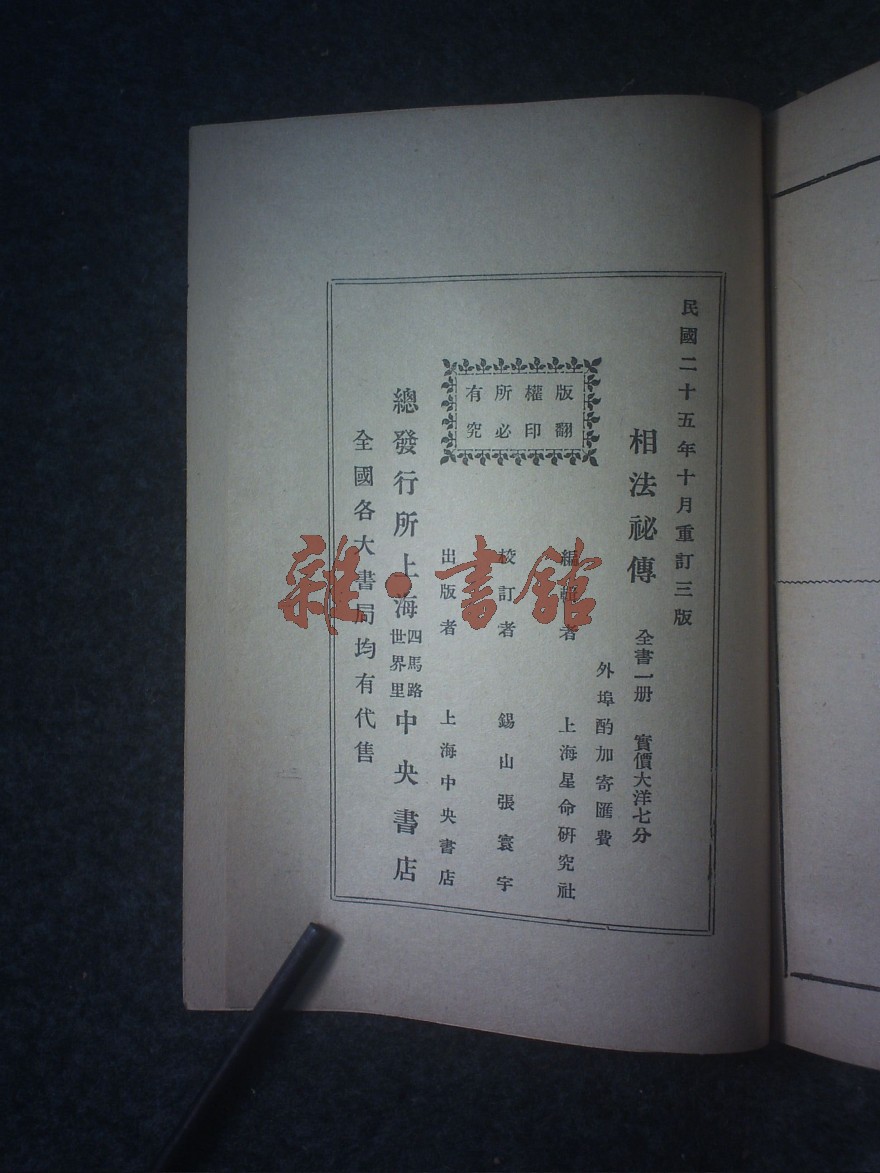 民國二十五年十月重訂三版
相法祕傳 全書一册 實價大洋七分
外埠酌加寄匯費
編輯者 上海星命研究社
校訂者 錫山張寰宇
出版者 上海中央書店
版權所有
翻印必究
總發行所上海四馬路世界里中央書店
全國各大書局均有代售
雜·書館